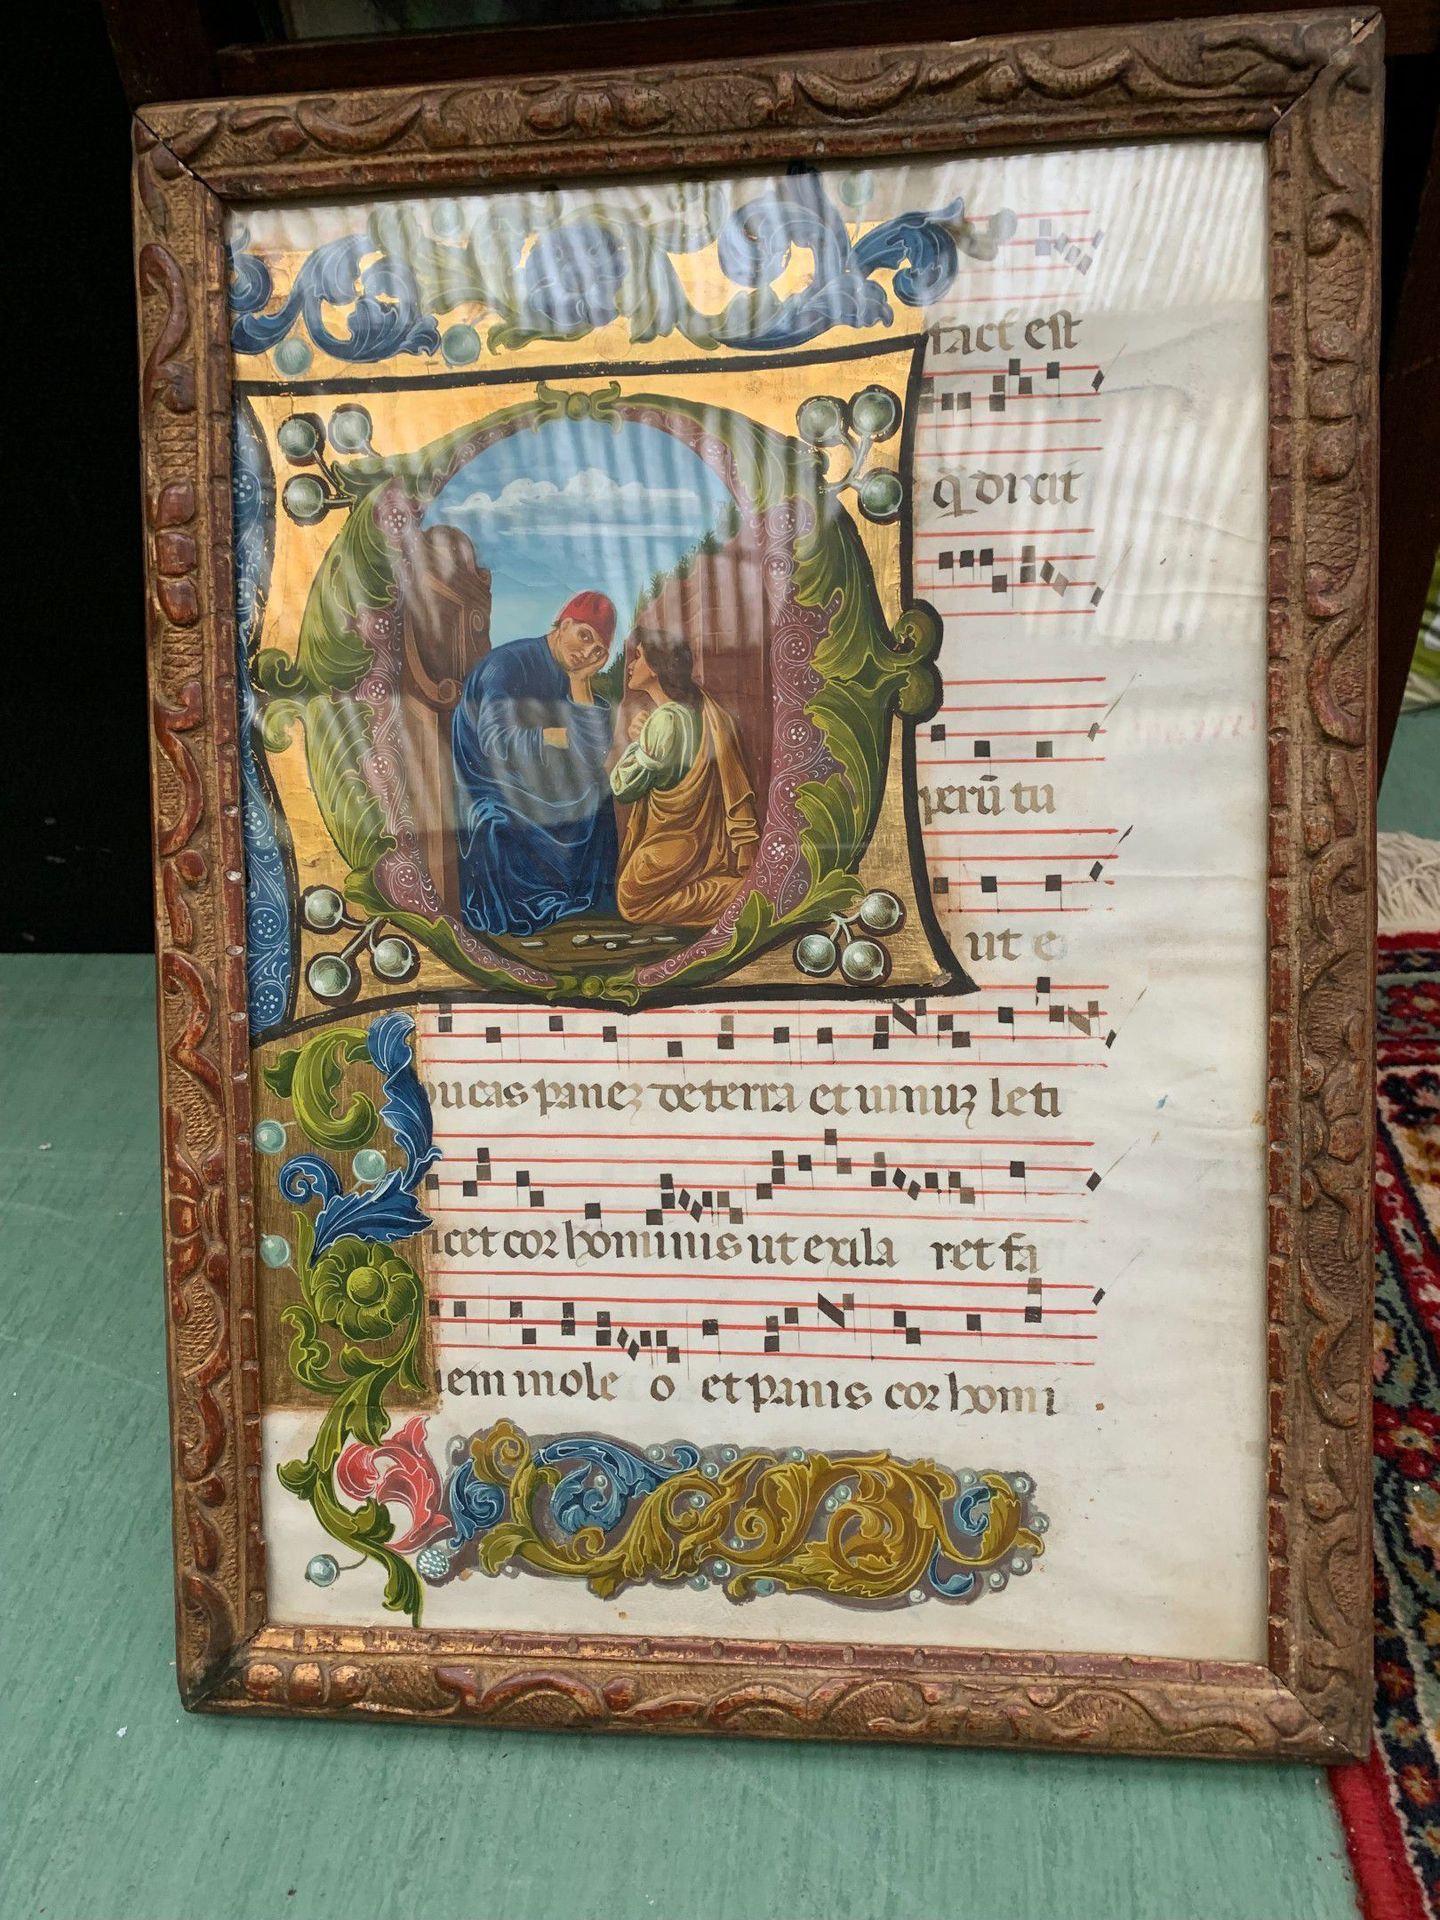 fact est
q̃ dixit
perū tu
ut e
ducas panez de terra et uinuz leti
icet cor hominis ut exila ret fa
iem in ole o et panis cor homi